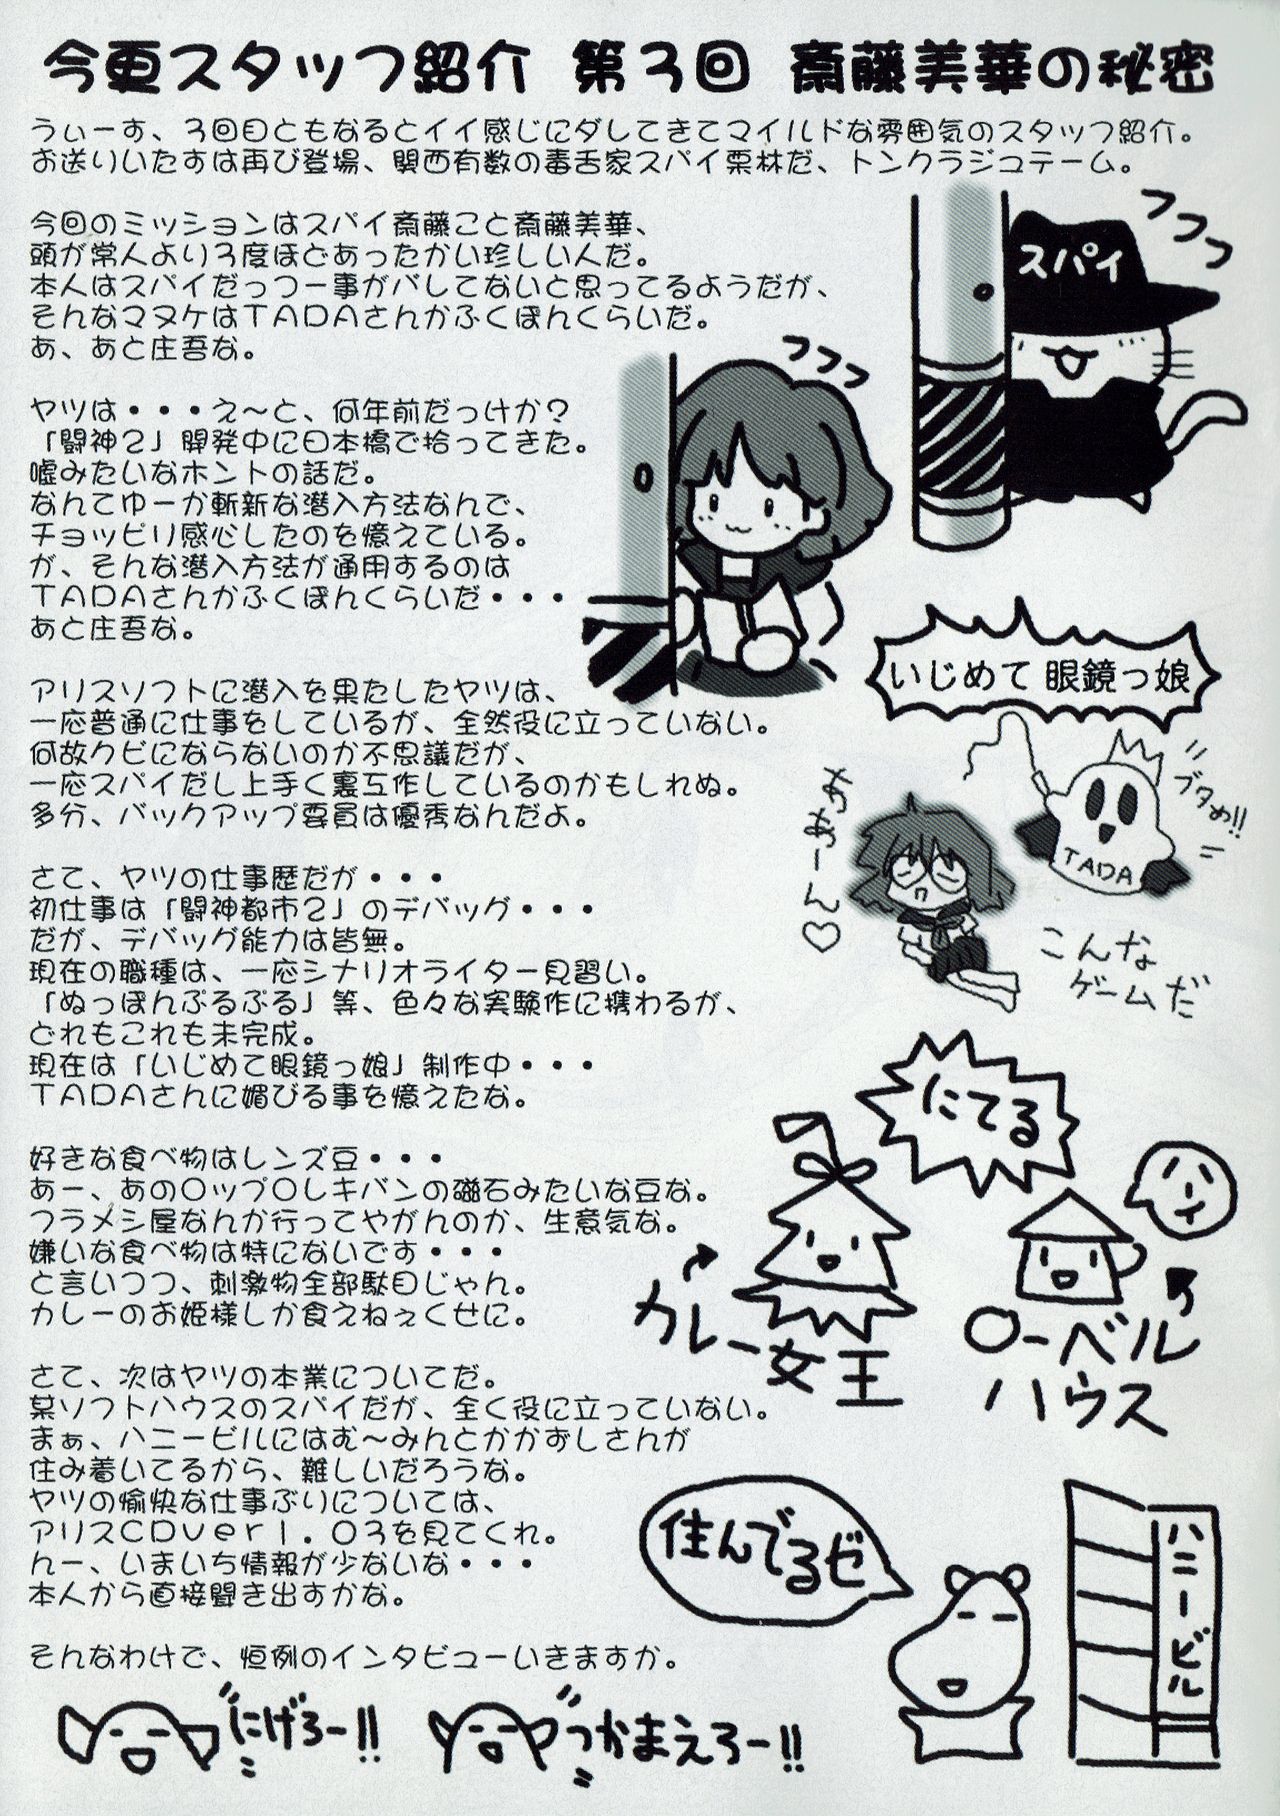 今更スタッフ紹介 第3回 斎藤美華の秘密
うぃーす、3回目ともなるとイイ感じにダレてきてマイルドな雰囲気のスタッフ紹介。
お送りいたすは再び登場、関西有数の毒舌家スパイ栗林だ、トンクラジュテーム。
今回のミッションはスパイ斎藤こと斎藤美華、
頭が常人より3度ほどあったかい珍しい人だ。
本人はスパイだっつー事がバレてないと思ってるようだが、
そんなマヌケはTADAさんかふくぽんくらいだ。
あ、あと庄吾な。
フフフ
スパイ
フフフ
ヤツは・・・え〜と、何年前だっけか?
「闘神2」開発中に日本橋で拾ってきた。
嘘みたいなホントの話だ。
なんてゆーか斬新な潜入方法なんで、
チョッピリ感心したのを憶えている。
が、そんな潜入方法が通用するのは
TADAさんかふくぽんくらいだ・・・
あと庄吾な。
アリスソフトに潜入を果たしたヤツは、
一応普通に仕事をしているが、全然役に立っていない。
何故クビにならないのか不思議だが、
一応スパイだし上手く裏工作しているのかもしれぬ。
多分、バックアップ要員は優秀なんだよ。
いじめて眼鏡っ娘
ブタめ!!
TADA
ああーん♡
こんな
ゲームだ
さて、ヤツの仕事歴だが・・・
初仕事は「闘神都市2」のデバッグ・・・
だが、デバッグ能力は皆無。
現在の職種は、一応シナリオライター見習い。
「ぬっぽんぷるぷる」等、色々な実験作に携わるが、
どれもこれも未完成。
現在は「いじめて眼鏡っ娘」制作中・・・
TADAさんに媚びる事を憶えたな。
好きな食べ物はレンズ豆・・・
あー、あの○ップ○レキバンの磁石みたいな豆な。
フラメシ屋なんか行ってやがんのか、生意気な。
嫌いな食べ物は特にないです・・・
と言いつつ、刺激物全部駄目じゃん。
カレーのお姫様しか食えねぇくせに。
にてる
ハイ
カレー女王
○ーベル
ハウス
さて、次はヤツの本業についてだ。
某ソフトハウスのスパイだが、全く役に立っていない。
まぁ、ハニービルにはむ〜みんとかかおしさんが
住み着いてるから、難しいだろうな。
ヤツの愉快な仕事ぶりについては、
アリスCDver1.03を見てくれ。
んー、いまいち情報が少ないな・・・
本人から直接聞き出すかな。
住んでるゼ
ハニービル
そんなわけで、恒例のインタビューいきますか。
にげろー!!
つかまえろー!!